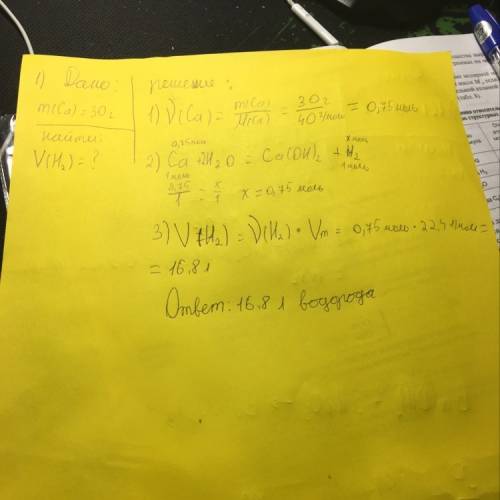 1) Дано:
m(Ca)=30г
найти:
V(H₂)=?
решение:
1) ν(Ca) = m(Ca)/M(Ca) = 30г/40г/моль = 0,75 моль
0,75 моль x моль
2) Ca+2H₂O = Ca(OH)₂ + H₂
1 моль 1 моль
0,75/1 = x/1 x = 0,75 моль
3) V(H₂) = ν(H₂) · Vm = 0,75 моль · 22,4 л/моль =
= 16,8 л
Ответ: 16,8 л водорода